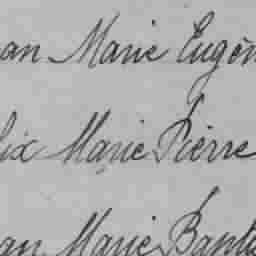 an Marie Eugèn
lix Marie Pierre
an Marie Bapti